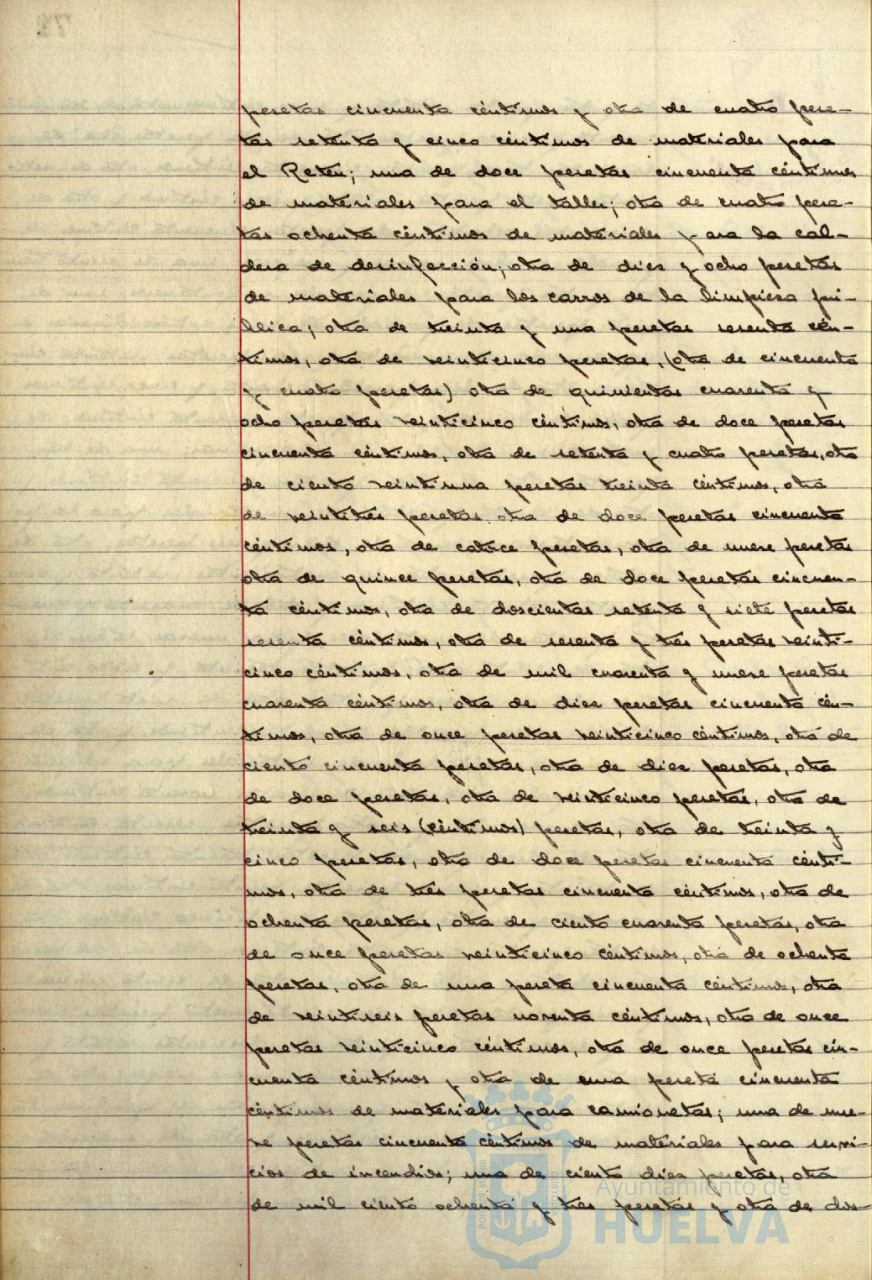 pesetas cincuenta céntimos y otra de cuatro pese-
tas setenta y cinco céntimos de materiales para
el Retén; una de doce pesetas cincuenta céntimos
de materiales para el taller; otra de cuatro pese-
tas ochenta céntimos de materiales para la cal-
dera de desinfección; otra de diez y ocho pesetas
de materiales para los carros de la limpieza pú-
blica; otra de treinta y una pesetas sesenta cén-
timos, otra de veinticinco pesetas, (otra de cincuenta
y cuatro pesetas) otra de quinientas cuarenta y
ocho pesetas veinticinco céntimos, otra de doce pesetas
cincuenta céntimos, otra de setenta y cuatro pesetas, otra
de ciento veintiuna pesetas treinta céntimos, otra
de veintitrés pesetas, otra de doce pesetas cincuenta
céntimos, otra de catorce pesetas, otra de nueve pesetas
otra de quince pesetas, otra de doce pesetas cincuen-
ta céntimos, otra de doscientas setenta y siete pesetas
sesenta céntimos, otra de sesenta y tres pesetas veinti-
cinco céntimos, otra de mil cuarenta y nueve pesetas
cuarenta céntimos, otra de diez pesetas cincuenta cén-
timos, otra de once pesetas veinticinco céntimos, otra de
ciento cincuenta pesetas, otra de diez pesetas, otra
de doce pesetas, otra de veinticinco pesetas, otra de
treinta y seis (céntimos) pesetas, otra de treinta y
cinco pesetas, otra de doce pesetas cincuenta cénti-
mos, otra de tres pesetas cincuenta céntimos, otra de
ochenta pesetas, otra de ciento cuarenta pesetas, otra
de once pesetas veinticinco céntimos, otra de ochenta
pesetas, otra de una peseta cincuenta céntimos, otra
de veintiseis pesetas noventa céntimos, otra de once
pesetas veinticinco céntimos, otra de once pesetas cin-
cuenta céntimos y otra de una peseta cincuenta
céntimos de materiales para camionetas; una de nue-
ve pesetas cincuenta céntimos de materiales para servi-
cios de incendios; una de ciento diez pesetas, otra
de mil ciento ochenta y tres pesetas y otra de dos-
Ayuntamiento de
HUELVA